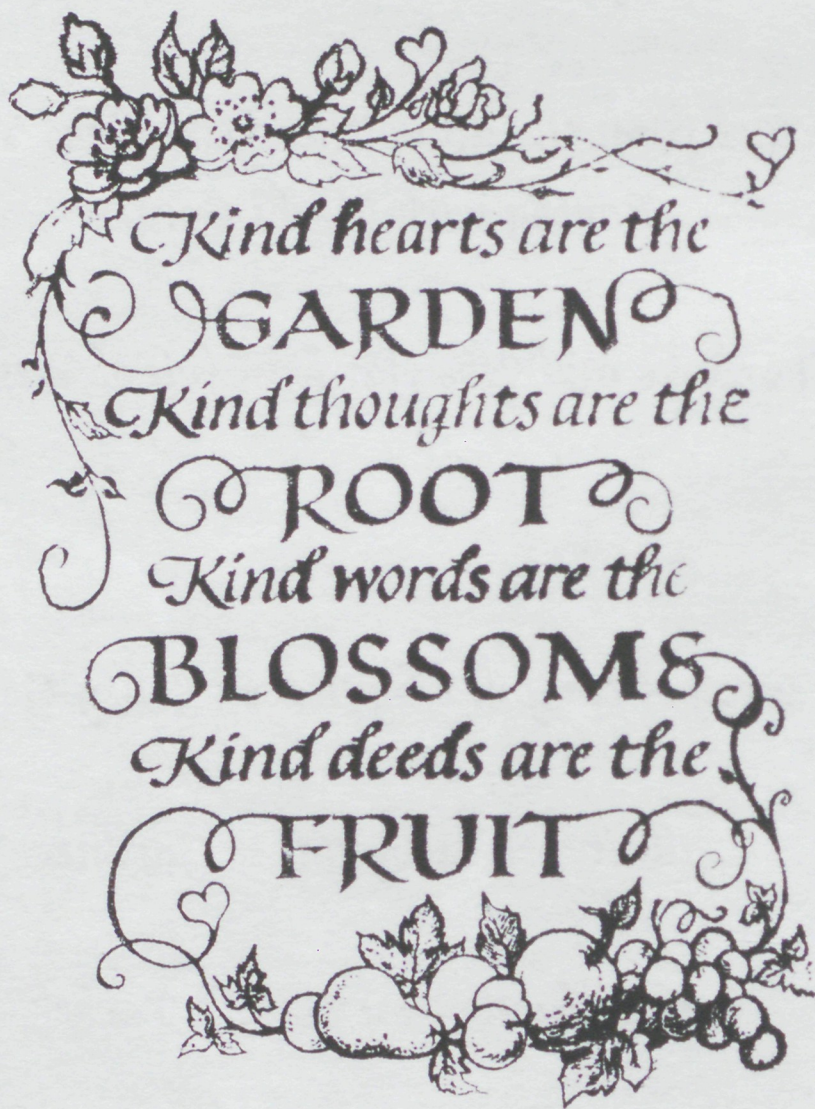 Kind hearts are the
GARDEN
Kind thoughts are the
ROOT
Kind words are the
BLOSSOMS
Kind deeds are the
FRUIT